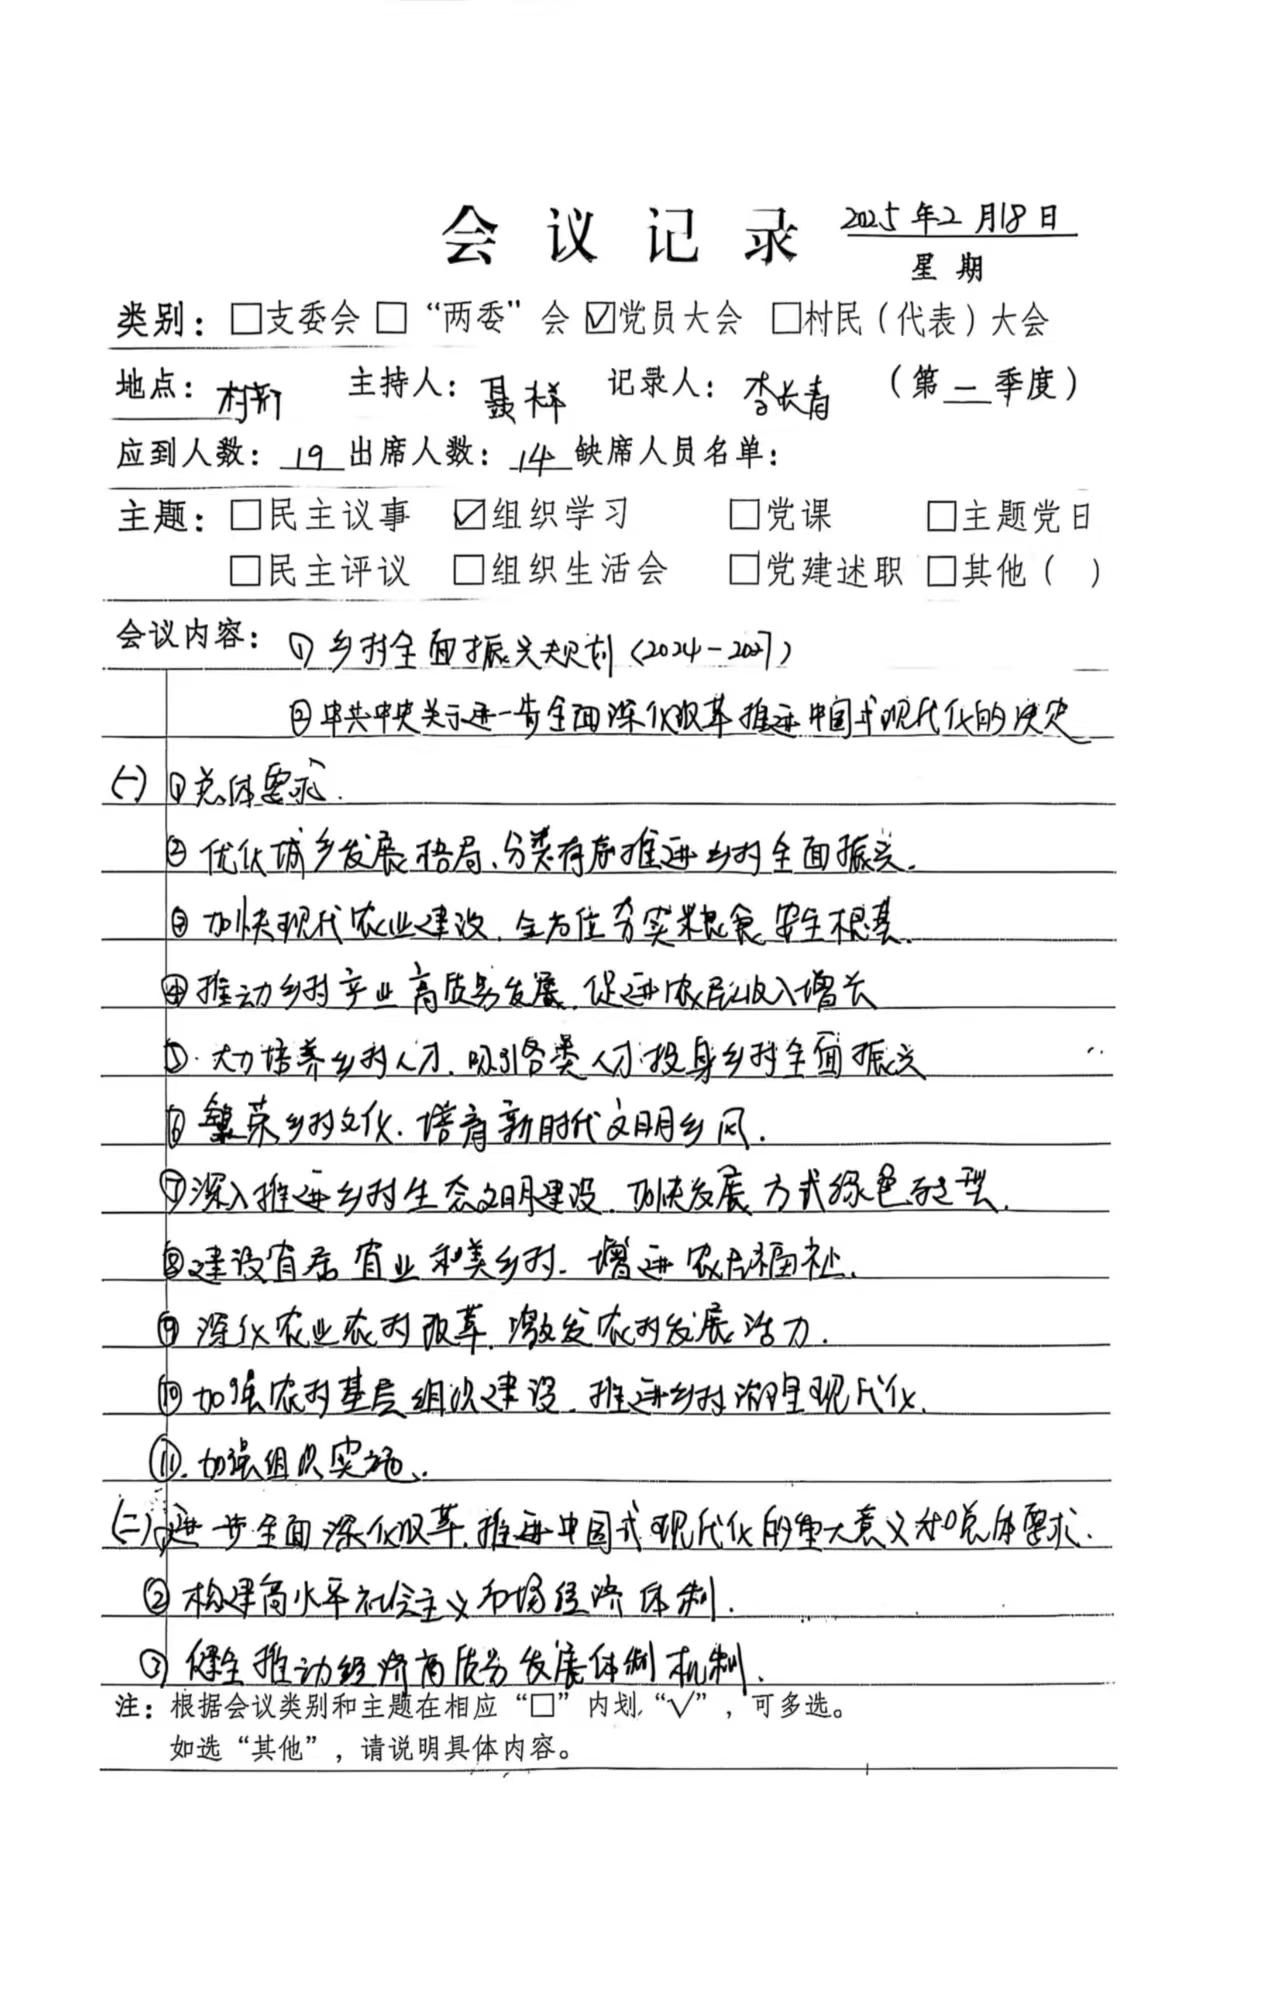 会议记录 2025年2月18日
星期
类别：□支委会 □“两委”会 ☑党员大会 □村民（代表）大会
地点：村部 主持人：聂祥 记录人：李长青 （第一季度）
应到人数：19 出席人数：14 缺席人员名单：
主题：□民主议事 ☑组织学习 □党课 □主题党日
□民主评议 □组织生活会 □党建述职 □其他（ ）
会议内容：① 乡村全面振兴规划（2024-2027）
②中共中央关于进一步全面深化改革推进中国式现代化的决定
(一) ①总体要求.
② 优化城乡发展格局、分类有序推进乡村全面振兴.
③ 加快现代农业建设，全方位夯实粮食安全根基.
④推动乡村产业高质量发展，促进农民收入增长
⑤. 大力培养乡村人才，吸引各类人才投身乡村全面振兴
⑥ 繁荣乡村文化，培育新时代文明乡风.
⑦深入推进乡村生态文明建设，加快发展方式绿色转型.
⑧建设宜居宜业和美乡村，增进农民福祉.
⑨ 深化农业农村改革，激发农村发展活力.
⑩加强农村基层组织建设，推进乡村治理现代化.
⑪. 加强组织实施.
(二)①进一步全面深化改革，推进中国式现代化的重大意义和总体要求.
② 构建高水平社会主义市场经济体制.
③ 健全推动经济高质量发展体制机制.
注：根据会议类别和主题在相应“□”内划“√”，可多选。
如选“其他”，请说明具体内容。